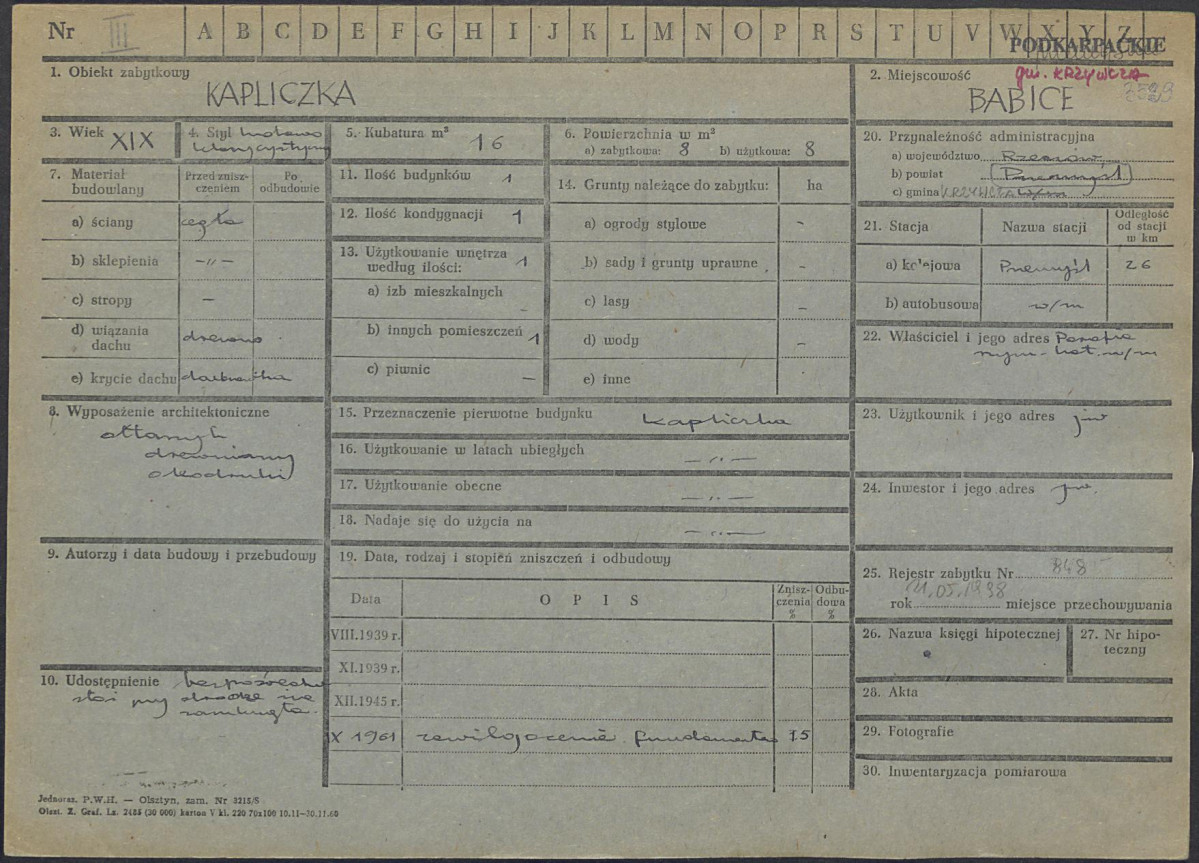 Nr III A B C D E F G H I J K L M N O P R S T U V W X Y Z
PODKARPACKIE
1. Obiekt zabytkowy
KAPLICZKA
2. Miejscowość gm. KRZYWCZA
BABICE
3. Wiek XIX
4. Styl
5. Kubatura m³ 16
6. Powierzchnia w m²
a) zabytkowa: 8 b) użytkowa: 8
7. Materiał budowlany
Przed znisz-
czeniem
Po
odbudowie
a) ściany cegła
b) sklepienia –„–
c) stropy –
d) wiązania
dachu drewno
e) krycie dachu dachówka
8. Wyposażenie architektoniczne
ołtarzyk
drewniany
9. Autorzy i data budowy i przebudowy
10. Udostępnienie bezpośrednie
stoi przy drodze nie
zamknięta.
11. Ilość budynków 1
12. Ilość kondygnacji 1
13. Użytkowanie wnętrza
według ilości: 1
a) izb mieszkalnych –
b) innych pomieszczeń 1
c) piwnic –
14. Grunty należące do zabytku: ha
a) ogrody stylowe –
b) sady i grunty uprawne –
c) lasy –
d) wody –
e) inne
15. Przeznaczenie pierwotne budynku kapliczka
16. Użytkowanie w latach ubiegłych –„–
17. Użytkowanie obecne –„–
18. Nadaje się do użycia na –„–
19. Data, rodzaj i stopień zniszczeń i odbudowy
Data OPIS
Znisz-
czenia
%
Odbu-
dowa
%
VIII.1939 r.
XI.1939 r.
XII.1945 r.
X 1961 zawilgocenie fundamentów 15
20. Przynależność administracyjna
a) województwo Rzeszów
b) powiat Przemyśl
c) gmina KRZYWCZA w/m
21. Stacja Nazwa stacji
Odległość
od stacji
w km
a) kolejowa Przemyśl 26
b) autobusowa w/m
22. Właściciel i jego adres Parafia
rzym.-kat. w/m
23. Użytkownik i jego adres jw
24. Inwestor i jego adres jw.
25. Rejestr zabytku Nr 848
rok 21.05.1998 miejsce przechowywania
26. Nazwa księgi hipotecznej
27. Nr hipo-
teczny
28. Akta
29. Fotografie
30. Inwentaryzacja pomiarowa
Jednoraz. P.W.H. — Olsztyn, zam. Nr 3215/S
Olszt. Z. Graf. Lz. 2485 (30 000) karton V kl. 220 70x100 10.11–30.11.60